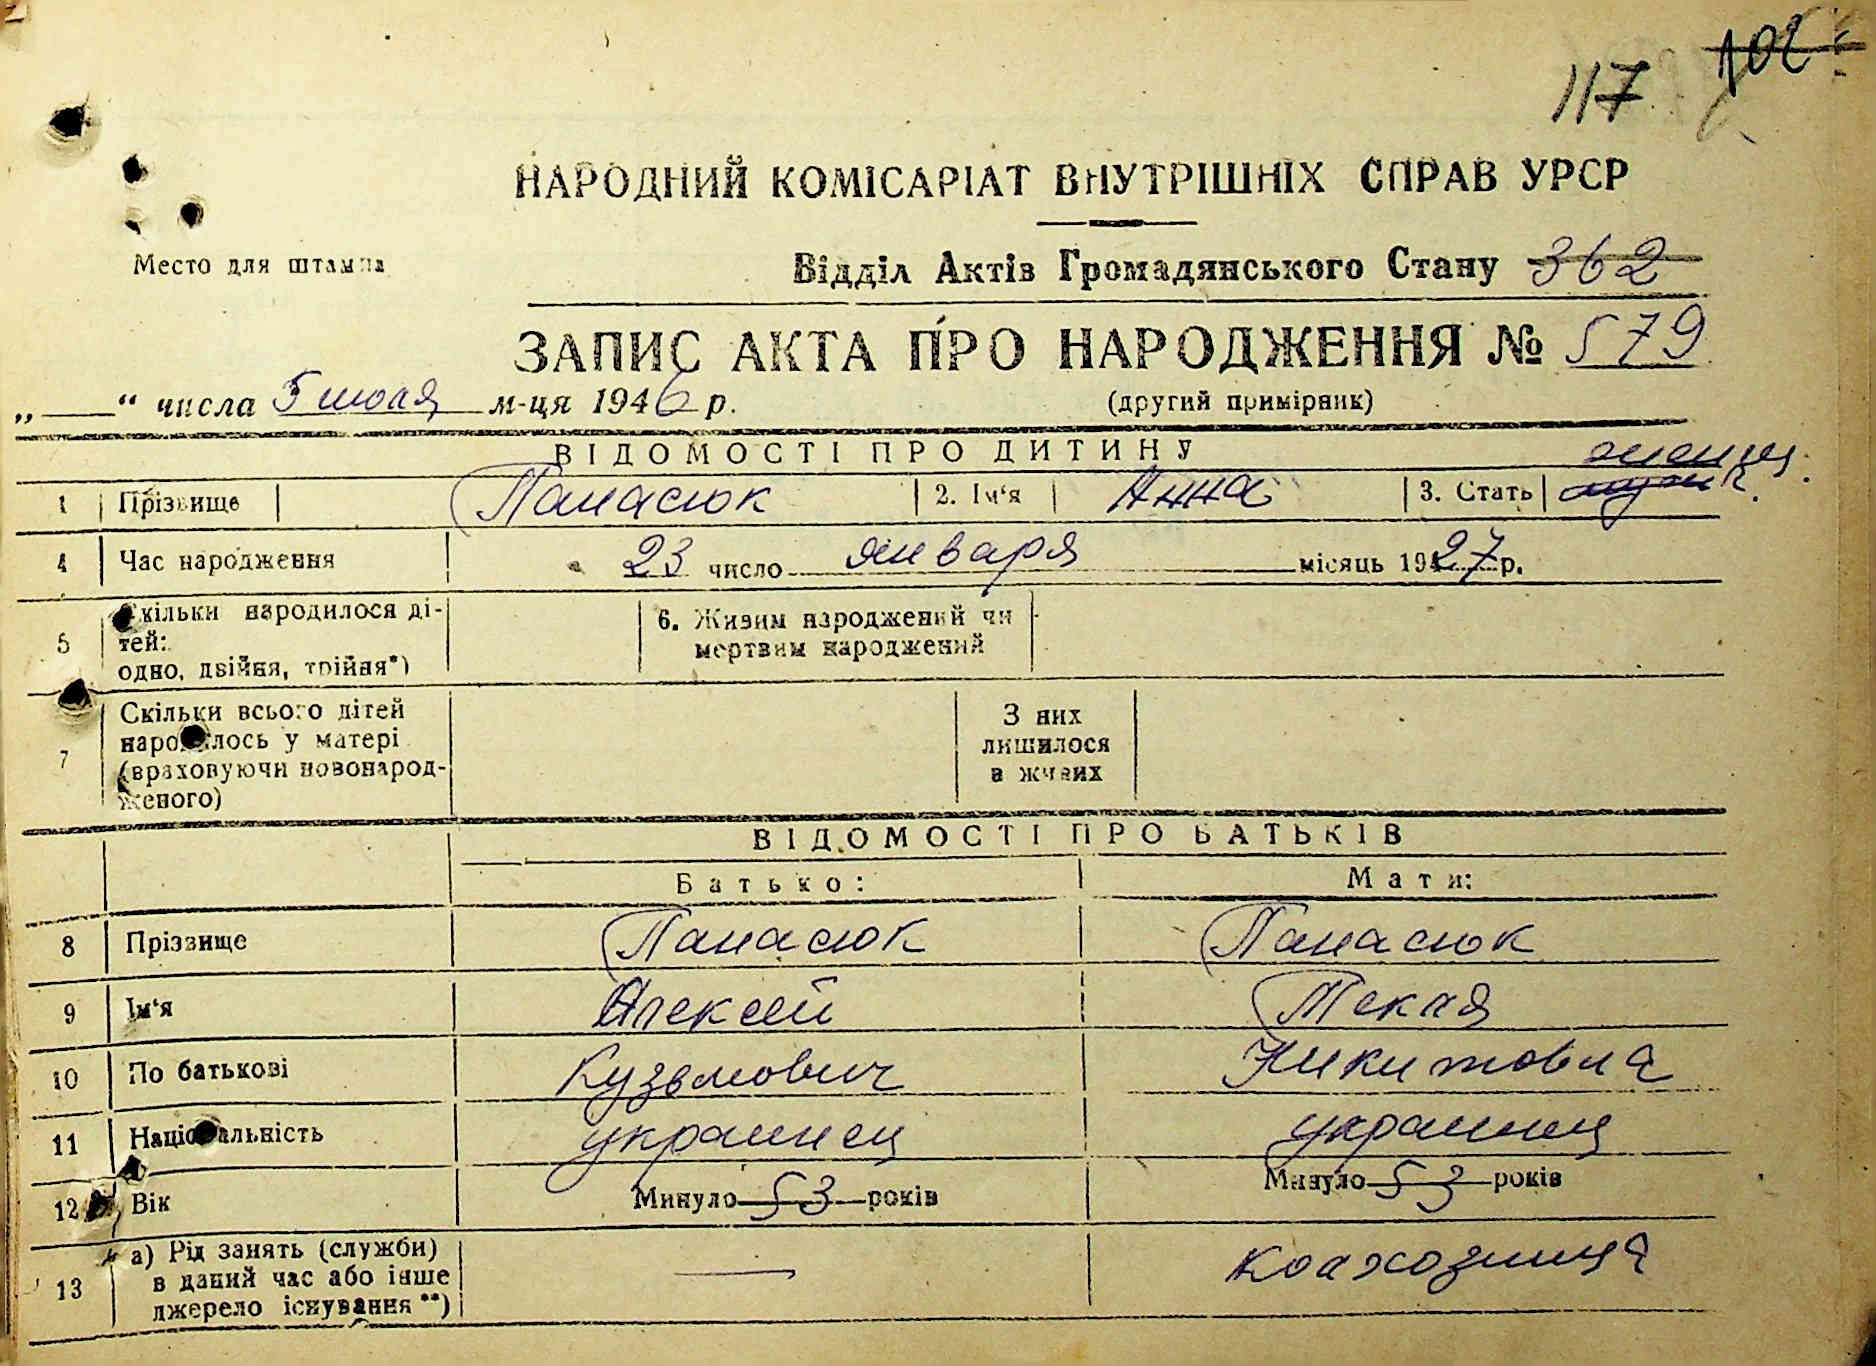 102
117
НАРОДНИЙ КОМІСАРІАТ ВНУТРІШНІХ СПРАВ УРСР
Место для штампа
Відділ Актів Громадянського Стану 362
ЗАПИС АКТА ПРО НАРОДЖЕННЯ № 579
„ “ числа 5 июля м-ця 1946 р. (другий примірник)
ВІДОМОСТІ ПРО ДИТИНУ
женщ.
1 Прізвище Панасюк 2. Ім‘я Анна 3. Стать
4 Час народження 23 число января місяць 1927 р.
5 Скільки народилося дітей: одно, двійня, трійня*) 6. Живим народжений чи мертвим народжений
7 Скільки всього дітей народилось у матері (враховуючи новонародженого) З них лишилося в живих
ВІДОМОСТІ ПРО БАТЬКІВ
Батько: Мати:
8 Прізвище Панасюк Панасюк
9 Ім‘я Алексей Текля
10 По батькові Кузьмович Никитовна
11 Національність украинец украинец
12 Вік Минуло 53 років Минуло 53 років
13 а) Рід занять (служби) в даний час або інше джерело існування**) — колхозница